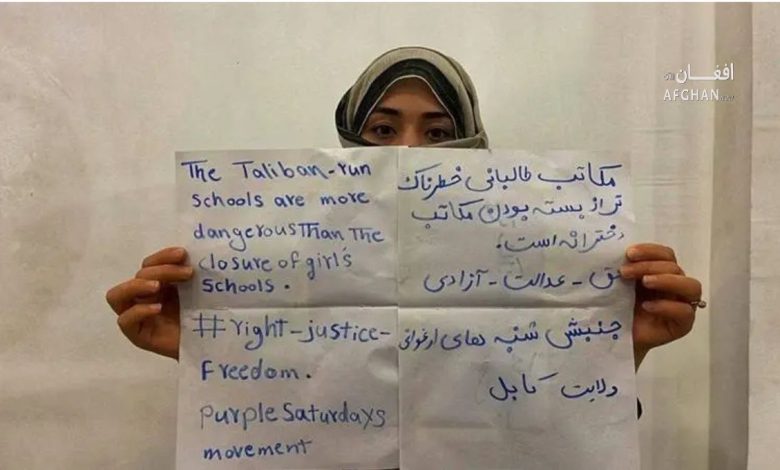 افغان
AFGHAN
The Taliban-run
schools are more
dangerous Than The
closure of girl's
schools.
#right-justice-
Freedom.
purple Saturdays
movement
مکاتب طالبانی خطرناک
تر از بسته بودن مکاتب
دخترانه است.
حق - عدالت - آزادی
جنبش شنبه های ارغوانی
ولایت کابل